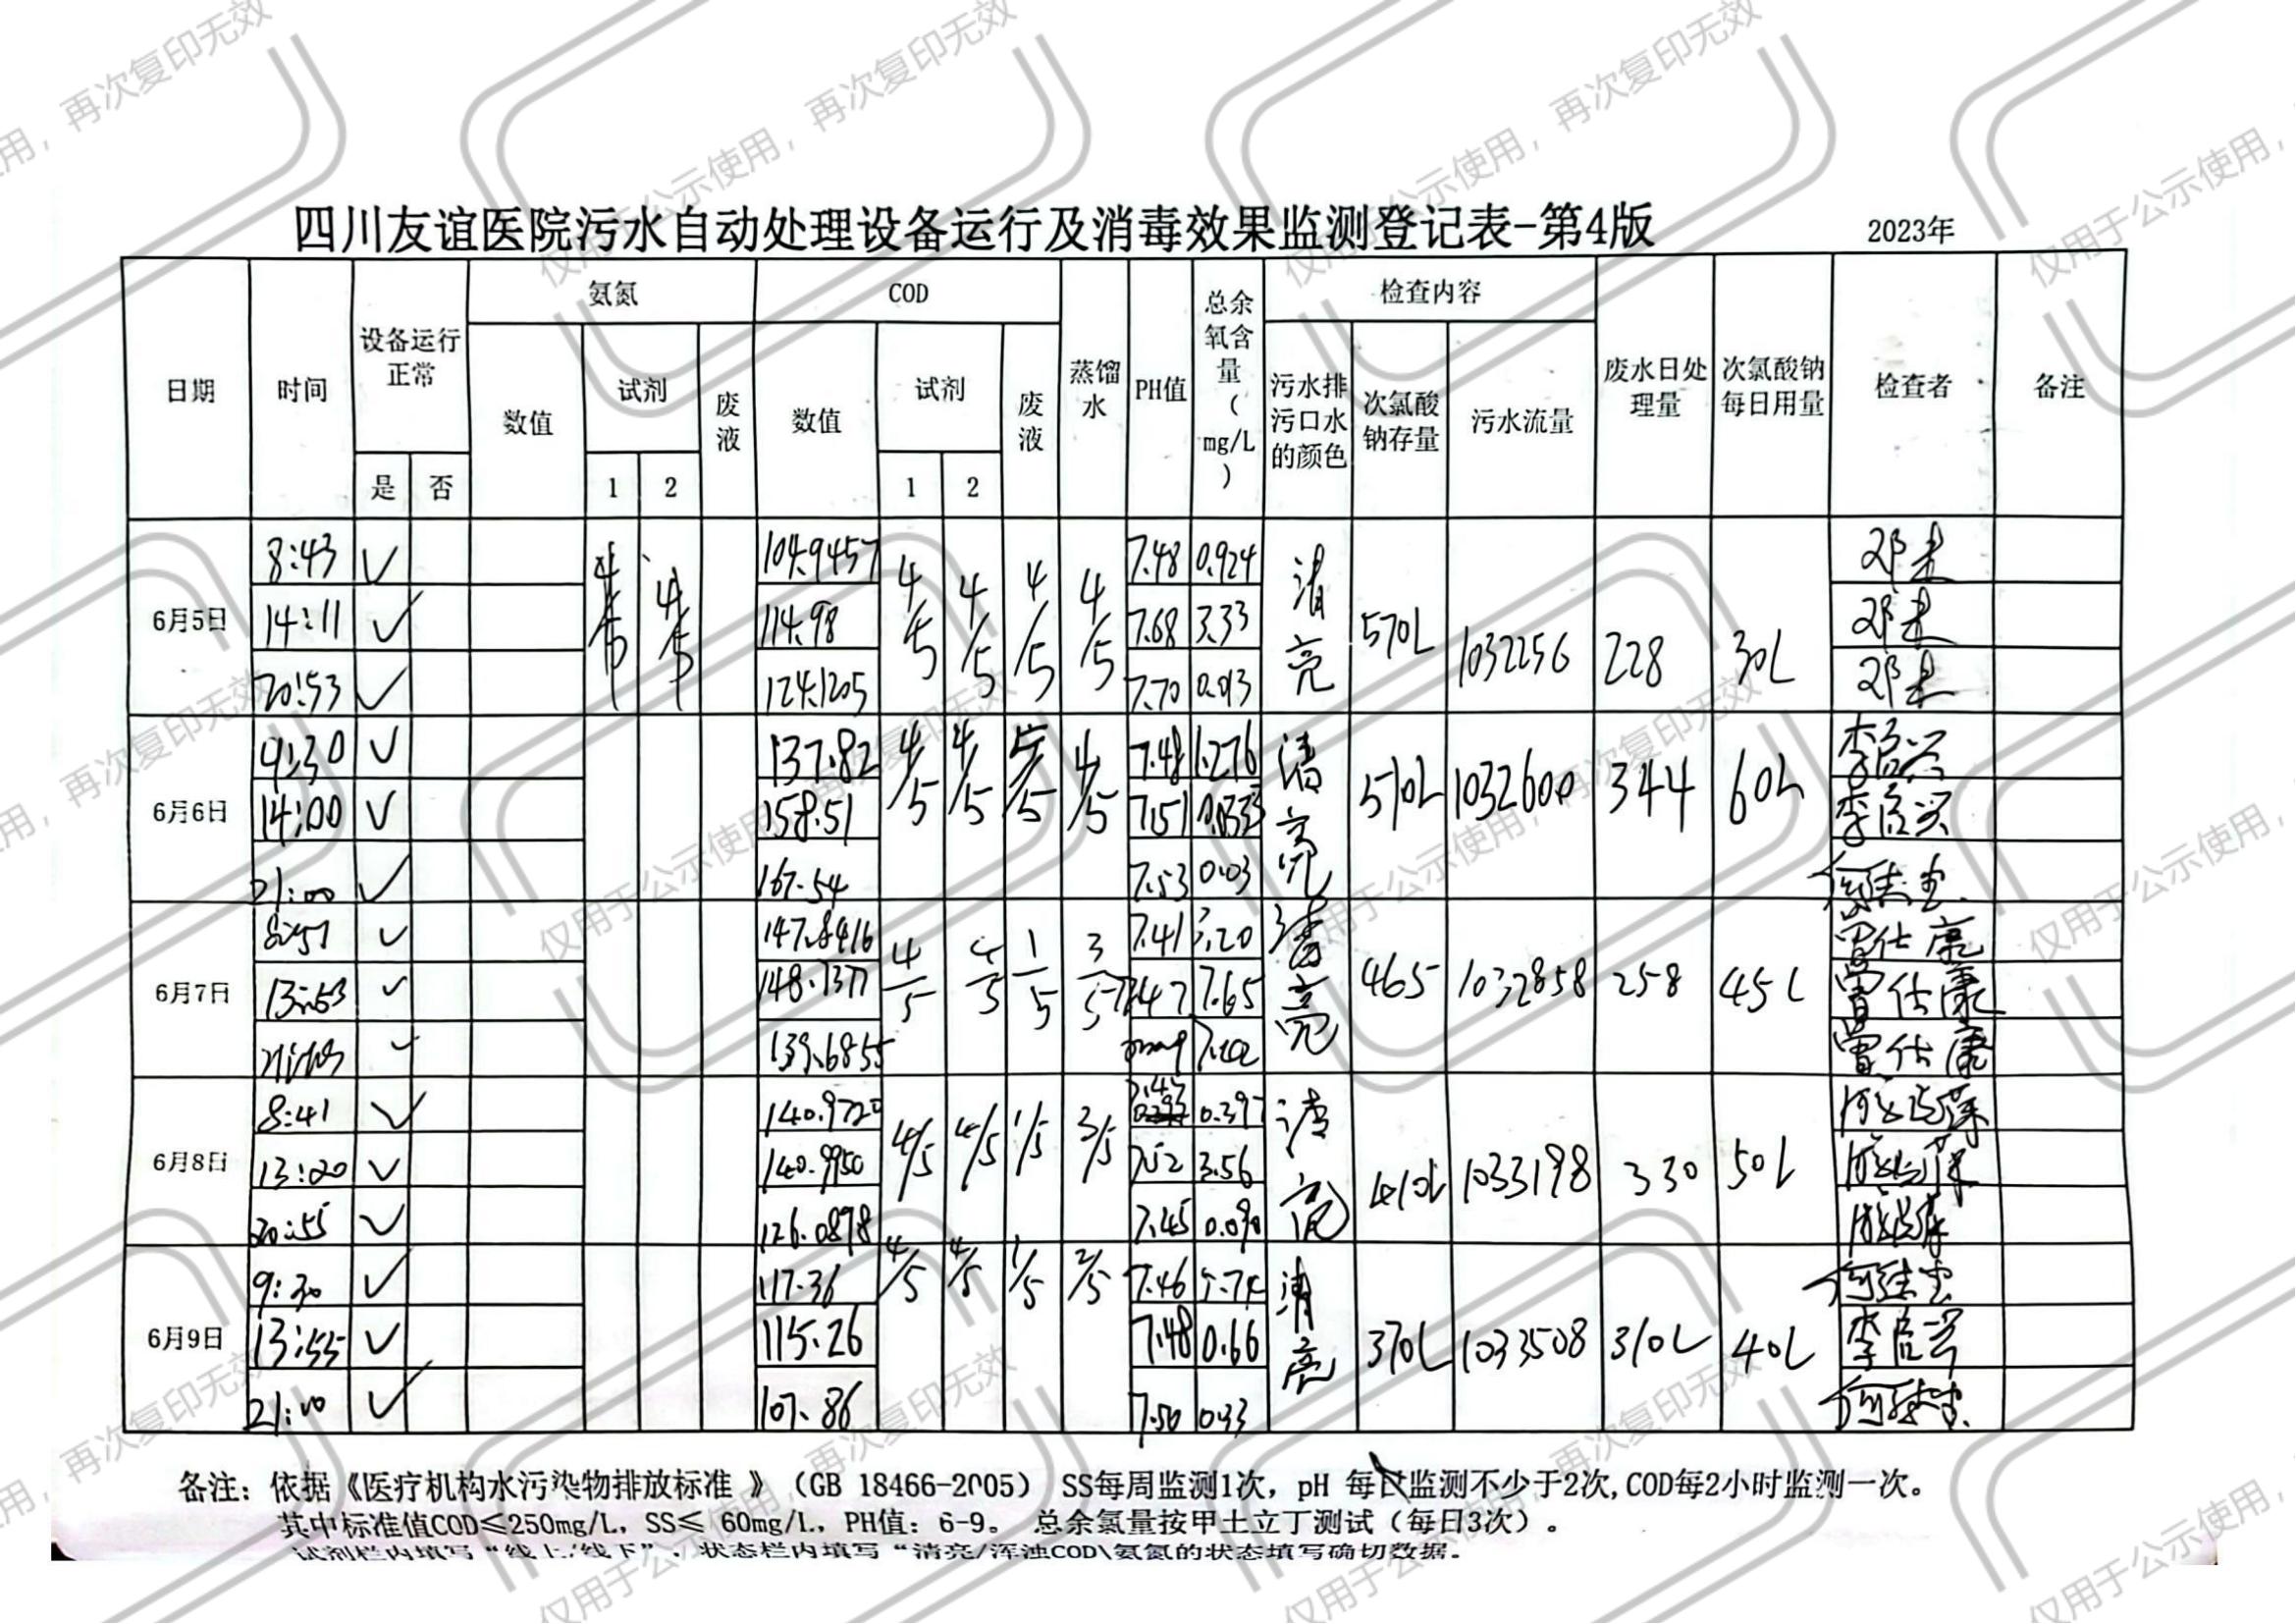 四川友谊医院污水自动处理设备运行及消毒效果监测登记表-第4版 2023年
日期 时间 设备运行正常 是 否 氨氮 数值 试剂 1 2 废液 COD 数值 试剂 1 2 废液 蒸馏水 PH值 总余氧含量(mg/L) 检查内容 污水排污口水的颜色 次氯酸钠存量 污水流量 废水日处理量 次氯酸钠每日用量 检查者 备注
6月5日 4/5 4/5 4/5 4/5 4/5 4/5 清亮 570L 1032256 228 30L
8:43 ✓ 104.9457 7.48 0.924
14:11 ✓ 114.98 7.68 3.33
20:53 ✓ 124.1205 7.70 0.013
6月6日 4/5 4/5 4/5 清亮 510L 1032600 344 60L
9:30 ✓ 137.82 7.48 1.276 李启兴
14:00 ✓ 158.51 7.51 李启兴
21:00 ✓ 167.54 7.53 0.03
6月7日 4/5 4/5 1/5 3/5 清亮 465 1032858 258 45L
8:51 ✓ 147.8416 7.41 3.20 曾仕康
13:53 ✓ 148.1377 7.47 7.65 曾仕康
✓ 139.6855 曾仕康
6月8日 4/5 4/5 1/5 3/5 清亮 410L 1033198 330 50L
8:41 ✓ 140.9720 7.43 0.397
13:20 ✓ 140.9950 7.52 3.56
20:55 ✓ 126.0898 7.45 0.090
6月9日 4/5 4/5 1/5 2/5 清亮 370L 1033508 310L 40L
9:30 ✓ 117.36 7.46 5.74
13:55 ✓ 115.26 7.48 0.66 李启兴
21:00 ✓ 107.86 7.50 0.33
备注：依据《医疗机构水污染物排放标准 》（GB 18466-2005） SS每周监测1次，pH 每日监测不少于2次,COD每2小时监测一次。
其中标准值COD≤250mg/L，SS≤ 60mg/L，PH值：6-9。 总余氯量按甲土立丁测试（每日3次）。
试剂栏内填写“线上/线下”，状态栏内填写“清亮/浑浊COD\氨氮的状态填写确切数据。
仅用于公示使用，再次复印无效